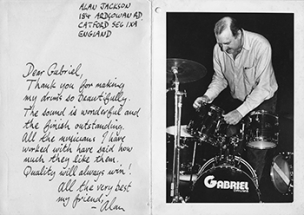 ALAN JACKSON
184 ARDGOWAN RD
CATFORD SE6 1XA
ENGLAND
Dear Gabriel,
Thank you for making
my drums so beautifully.
The sound is wonderful and
the finish outstanding.
All the musicians I have
worked with have said how
much they like them.
Quality will always win!
All the very best
my friend,
- Alan
GABRIEL